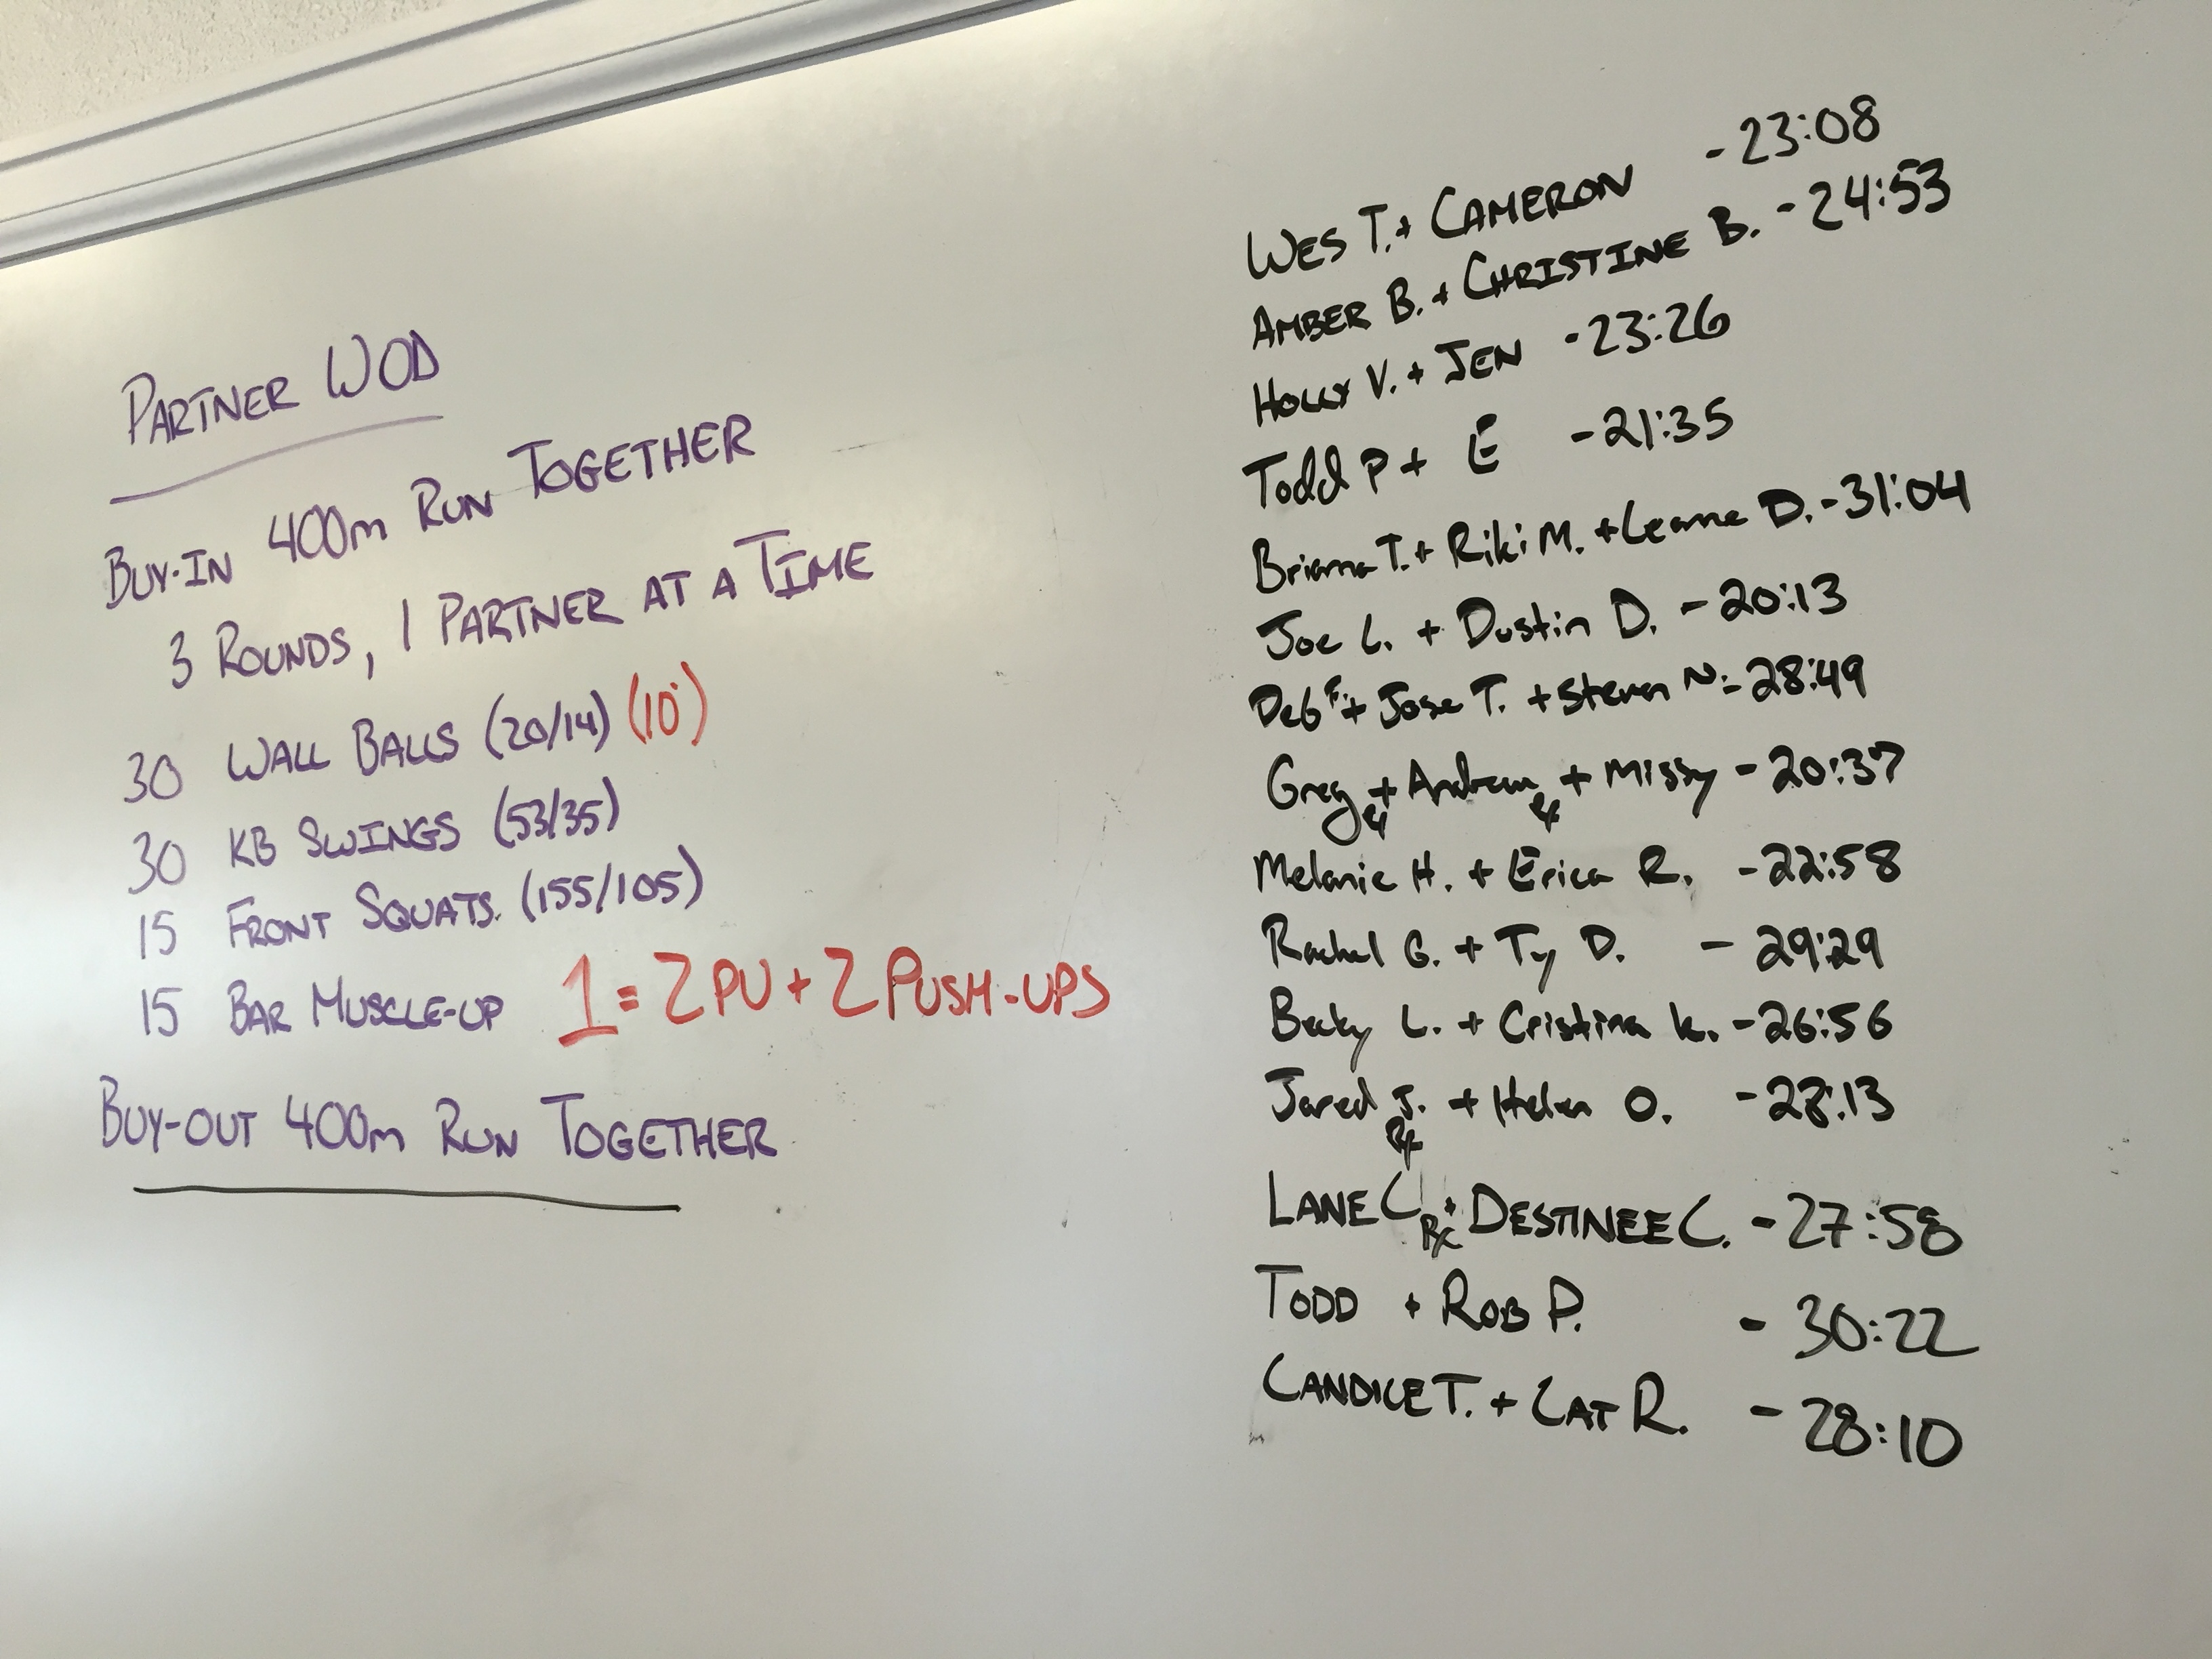 PARTNER WOD
BUY-IN 400m RUN TOGETHER
3 ROUNDS, 1 PARTNER AT A TIME
30 WALL BALLS (20/14) (10')
30 KB SWINGS (53/35)
15 FRONT SQUATS (155/105)
15 BAR MUSCLE-UP 1 = 2 PU + 2 PUSH-UPS
BUY-OUT 400m RUN TOGETHER
WES T. + CAMERON - 23:08
AMBER B. + CHRISTINE B. - 24:53
HOLLY V. + JEN - 23:26
Todd P + E - 21:35
Brianna T. + Riki M. + Leanne D. - 31:04
Joe L. + Dustin D. - 20:13
Deb F. + Jose T. + Steven N. - 28:49
Greg Rx + Andrew Rx + Missy - 20:37
Melanie H. + Erica R. - 22:58
Rachel G. + Ty D. - 29:29
Becky L. + Cristina K. - 26:56
Jared J. Rx + Helen O. - 28:13
LANE C Rx + DESTINEE C. - 27:58
TODD + ROB P. - 30:22
CANDICE T. + CAT R. - 28:10